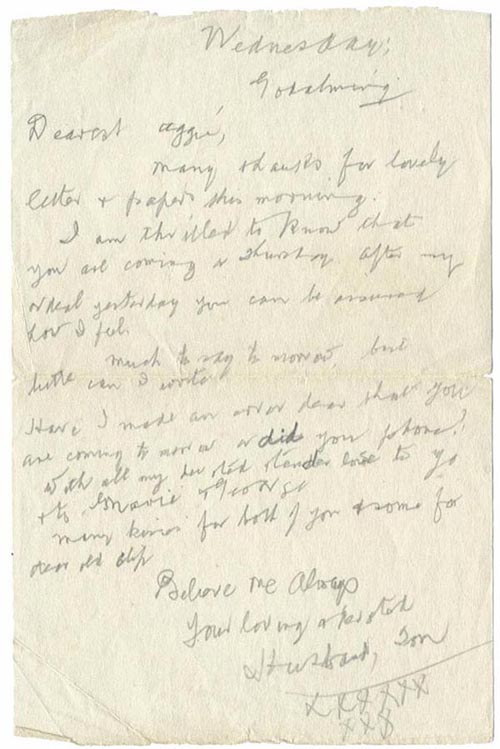 Wednesday;
Godalming.
Dearest Aggie,
Many thanks for lovely
letter & papers this morning.
I am thrilled to know that
you are coming a Thursday. After my
ordeal yesterday you can be assured
how I feel.
Much to say to morrow, but
little can I write.
Have I made an error dear that you
are coming to morrow or did you phone?
With all my devoted & tender love to yo
& to Mavis & George
Many kisses for both of you & some for
dear old
Believe me Always
Your loving & devoted
Husband, Tom
xxxxxx
xxx